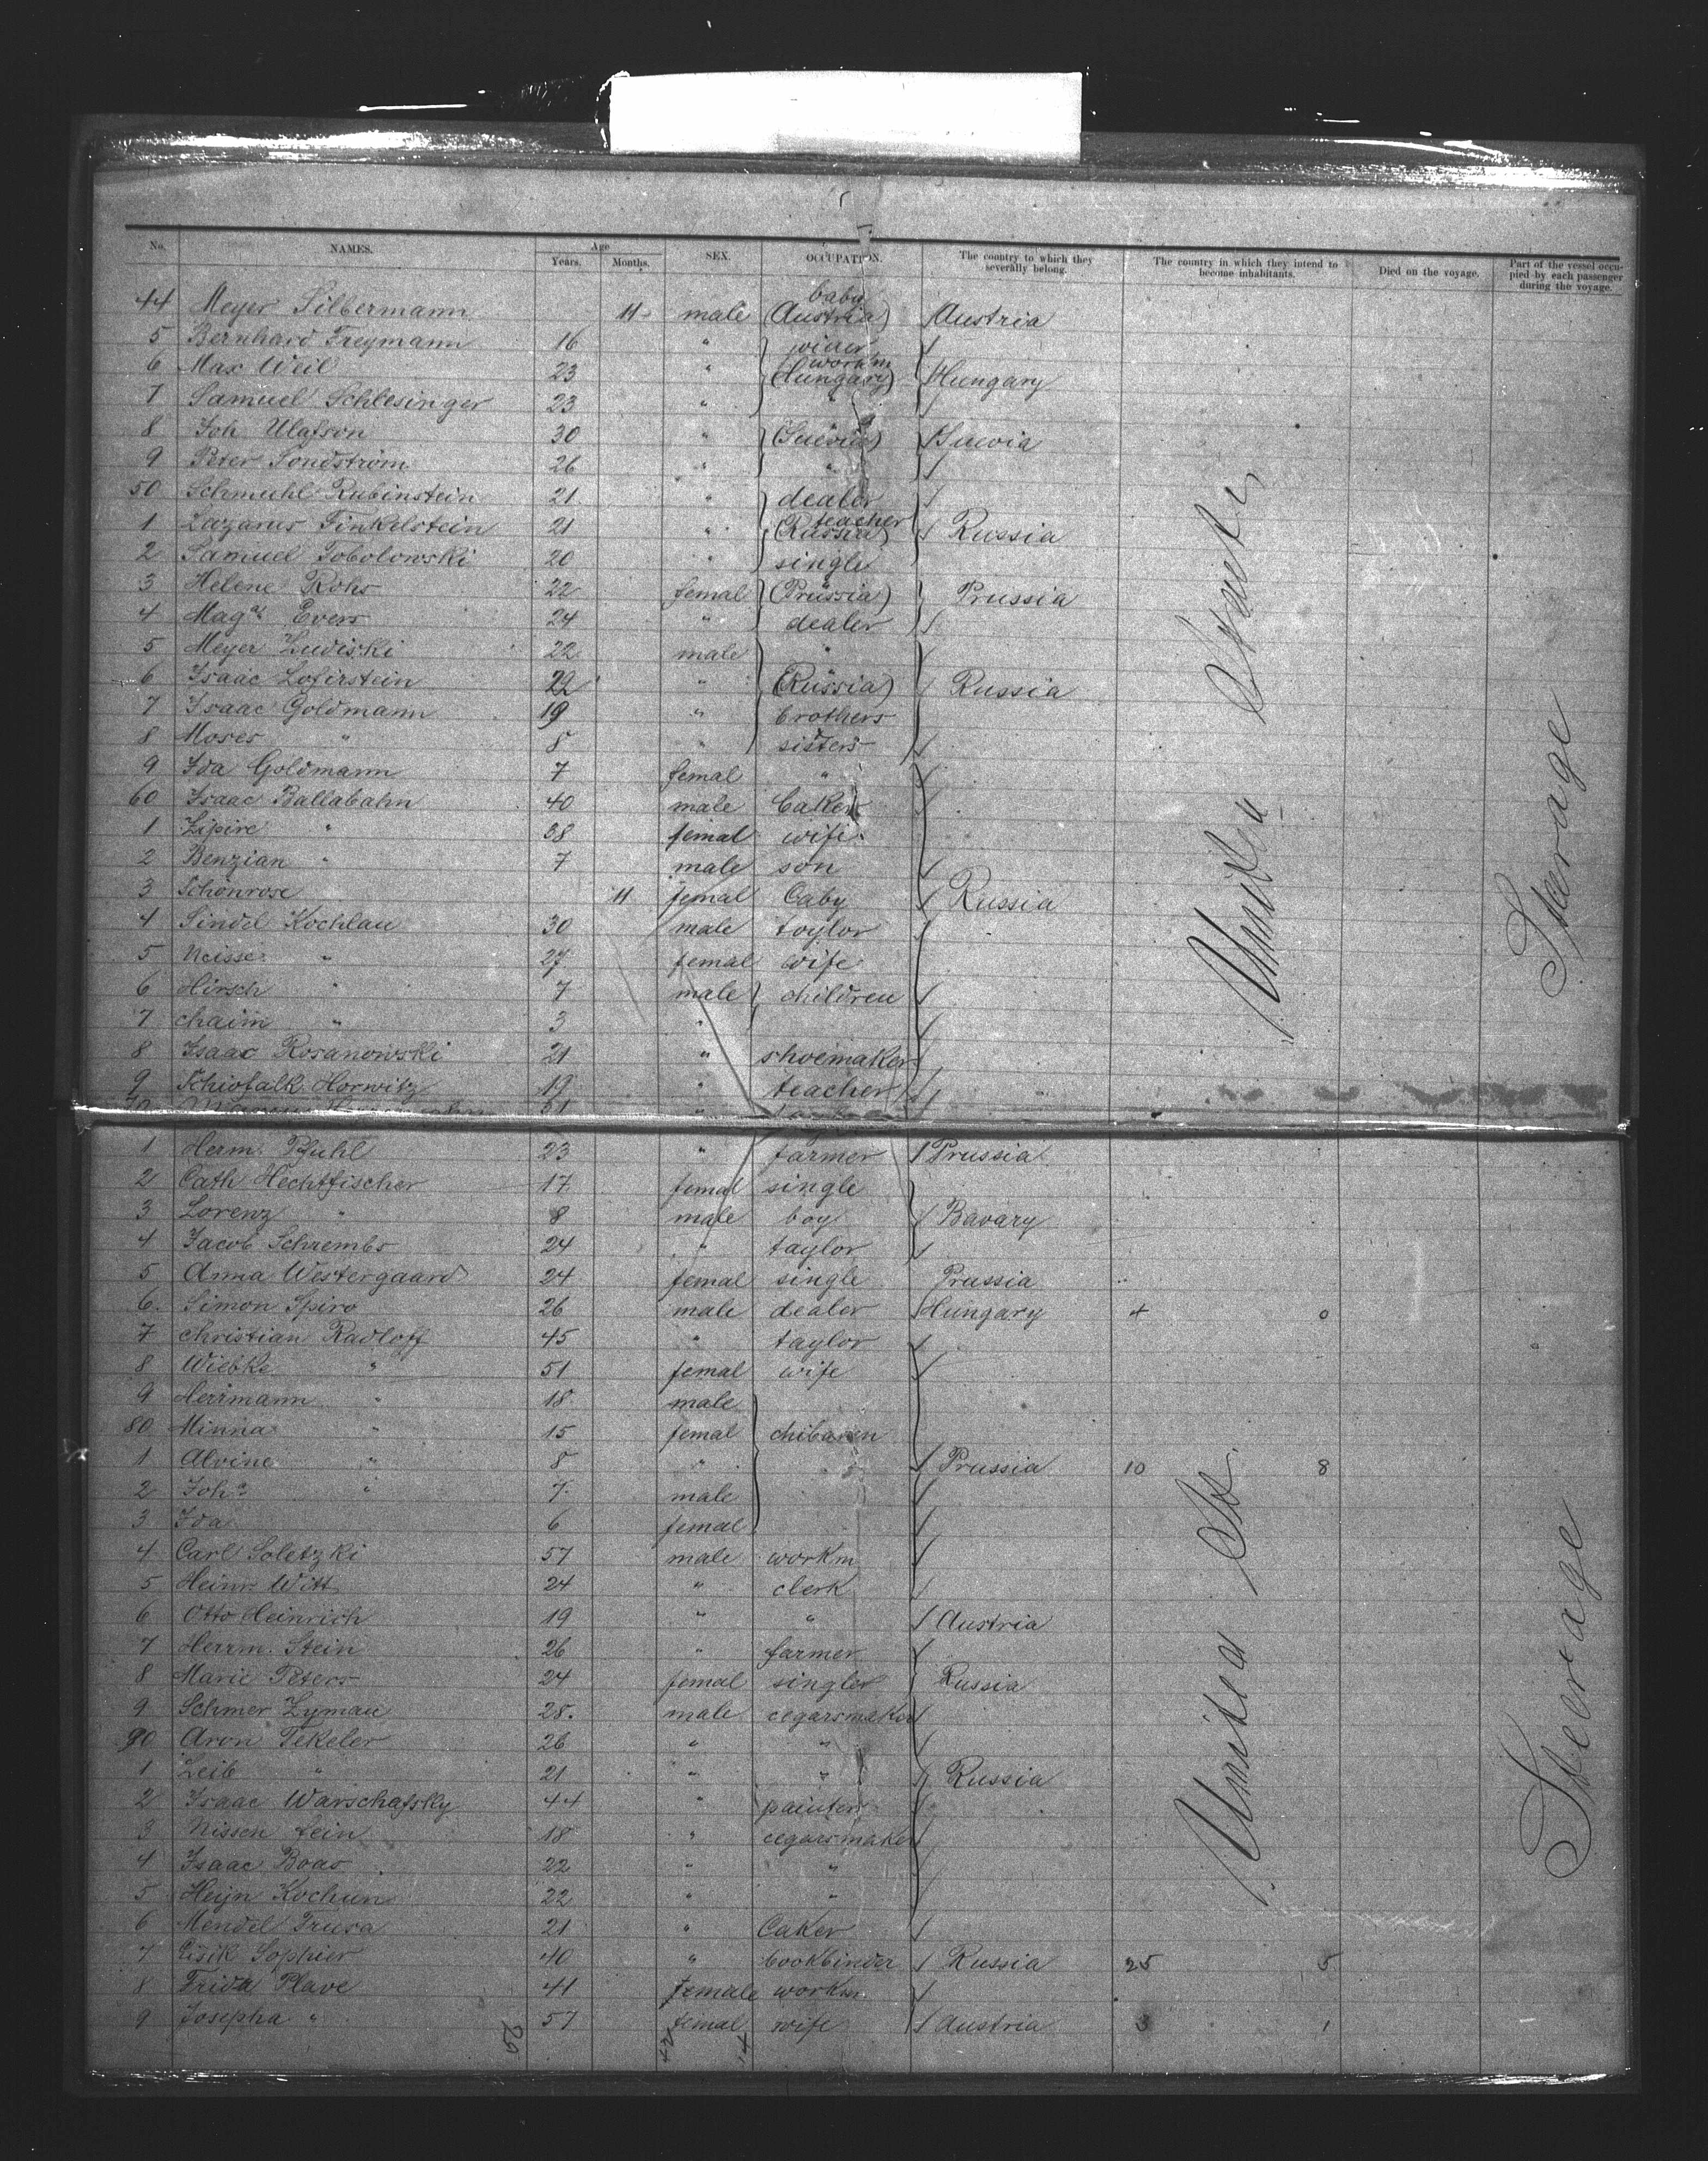 No. NAMES. Age Years. Months. SEX. OCCUPATION. The country to which they severally belong. The country in which they intend to become inhabitants. Died on the voyage. Part of the vessel occupied by each passenger during the voyage.
44 Meyer Silbermann 11 male baby (Austria) Austria
5 Bernhard Freymann 16 "
6 Max Weil 23 " workm (Hungary) Hungary
7 Samuel Schlesinger 23 " "
8 Joh Ulafson 30 " (Suevia) Suevia
9 Peter Sondström 26 " "
50 Schmuhl Rubinstein 21 " dealer
1 Lazarus Finkelstein 21 " teacher (Russia) Russia
2 Samuel Tobolowski 20 " single
3 Helene Rohs 22 femal (Prussia) Prussia
4 Mag^a Evers 24 " dealer
5 Meyer Ludiski 22 male "
6 Isaac Lofirstein 22 " (Russia) Russia
7 Isaac Goldmann 19 " brothers
8 Moses " 8 " sisters
9 Ida Goldmann 7 femal "
60 Isaac Ballabahn 40 male baker
1 Zipire " 38 femal wife
2 Benzian " 7 male son
3 Schönrose 11 femal baby Russia
4 Sindel Kochlau 30 male taylor
5 Neisse " 27 femal wife
6 Hirsch " 7 male children
7 chaim " 3 "
8 Isaac Rosanowski 21 " shoemaker
9 Horwitz 19 " teacher
1 Herm. Pfuhl 23 " farmer Prussia
2 Cath Hechtfischer 17 femal single
3 Lorenz " 8 male boy Bavary
4 Jacob Schrembs 24 " taylor
5 Anna Westergaard 24 femal single Prussia
6 Simon Spiro 26 male dealer Hungary 4 0
7 christian Radloff 45 " taylor
8 Wiebke " 51 femal wife
9 Herrmann " 18 male
80 Minna " 15 femal
1 Alvine " 8 " Prussia 10 8
2 Joh^s " 7 male
3 Ida 6 femal
4 Carl Soletzki 57 male workm
5 Heinr Witt 24 " clerk
6 Otto Heinrich 19 " " Austria
7 Herrm. Stein 26 " farmer
8 Marie Peters 24 femal single Russia
9 Schmer Lyman 28. male cegarsmaker
90 Aron Tekeler 26 " "
1 Leib " 21 " " Russia
2 Isaac Warschafsky 44 " painter
3 Nissen fein 18 " cegarsmaker
4 Isaac Boas 22 " "
5 Heijn Kochun 22 " "
6 Mendel Trusa 21 " baker
7 Eisik Sophier 40 " bookbinder Russia 25 5
8 Frida Plave 41 female workm.
9 Josepha " 57 femal wife Austria 3 1
United States
Steerage
United St
Steerage